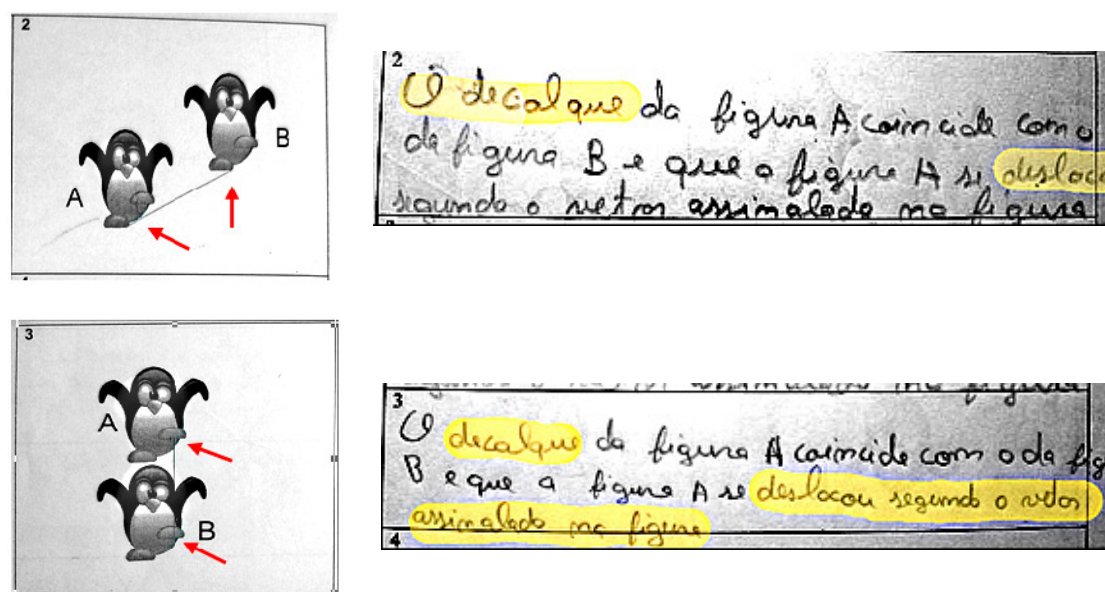 2
A
B
2
O decalque da figura A coincide com o
da figura B e que a figura A se desloc
segundo o vetor assinalado na figura
3
A
B
3
O decalque da figura A coincide com o da fig
B e que a figura A se deslocou segundo o vetor
assinalado na figura
4